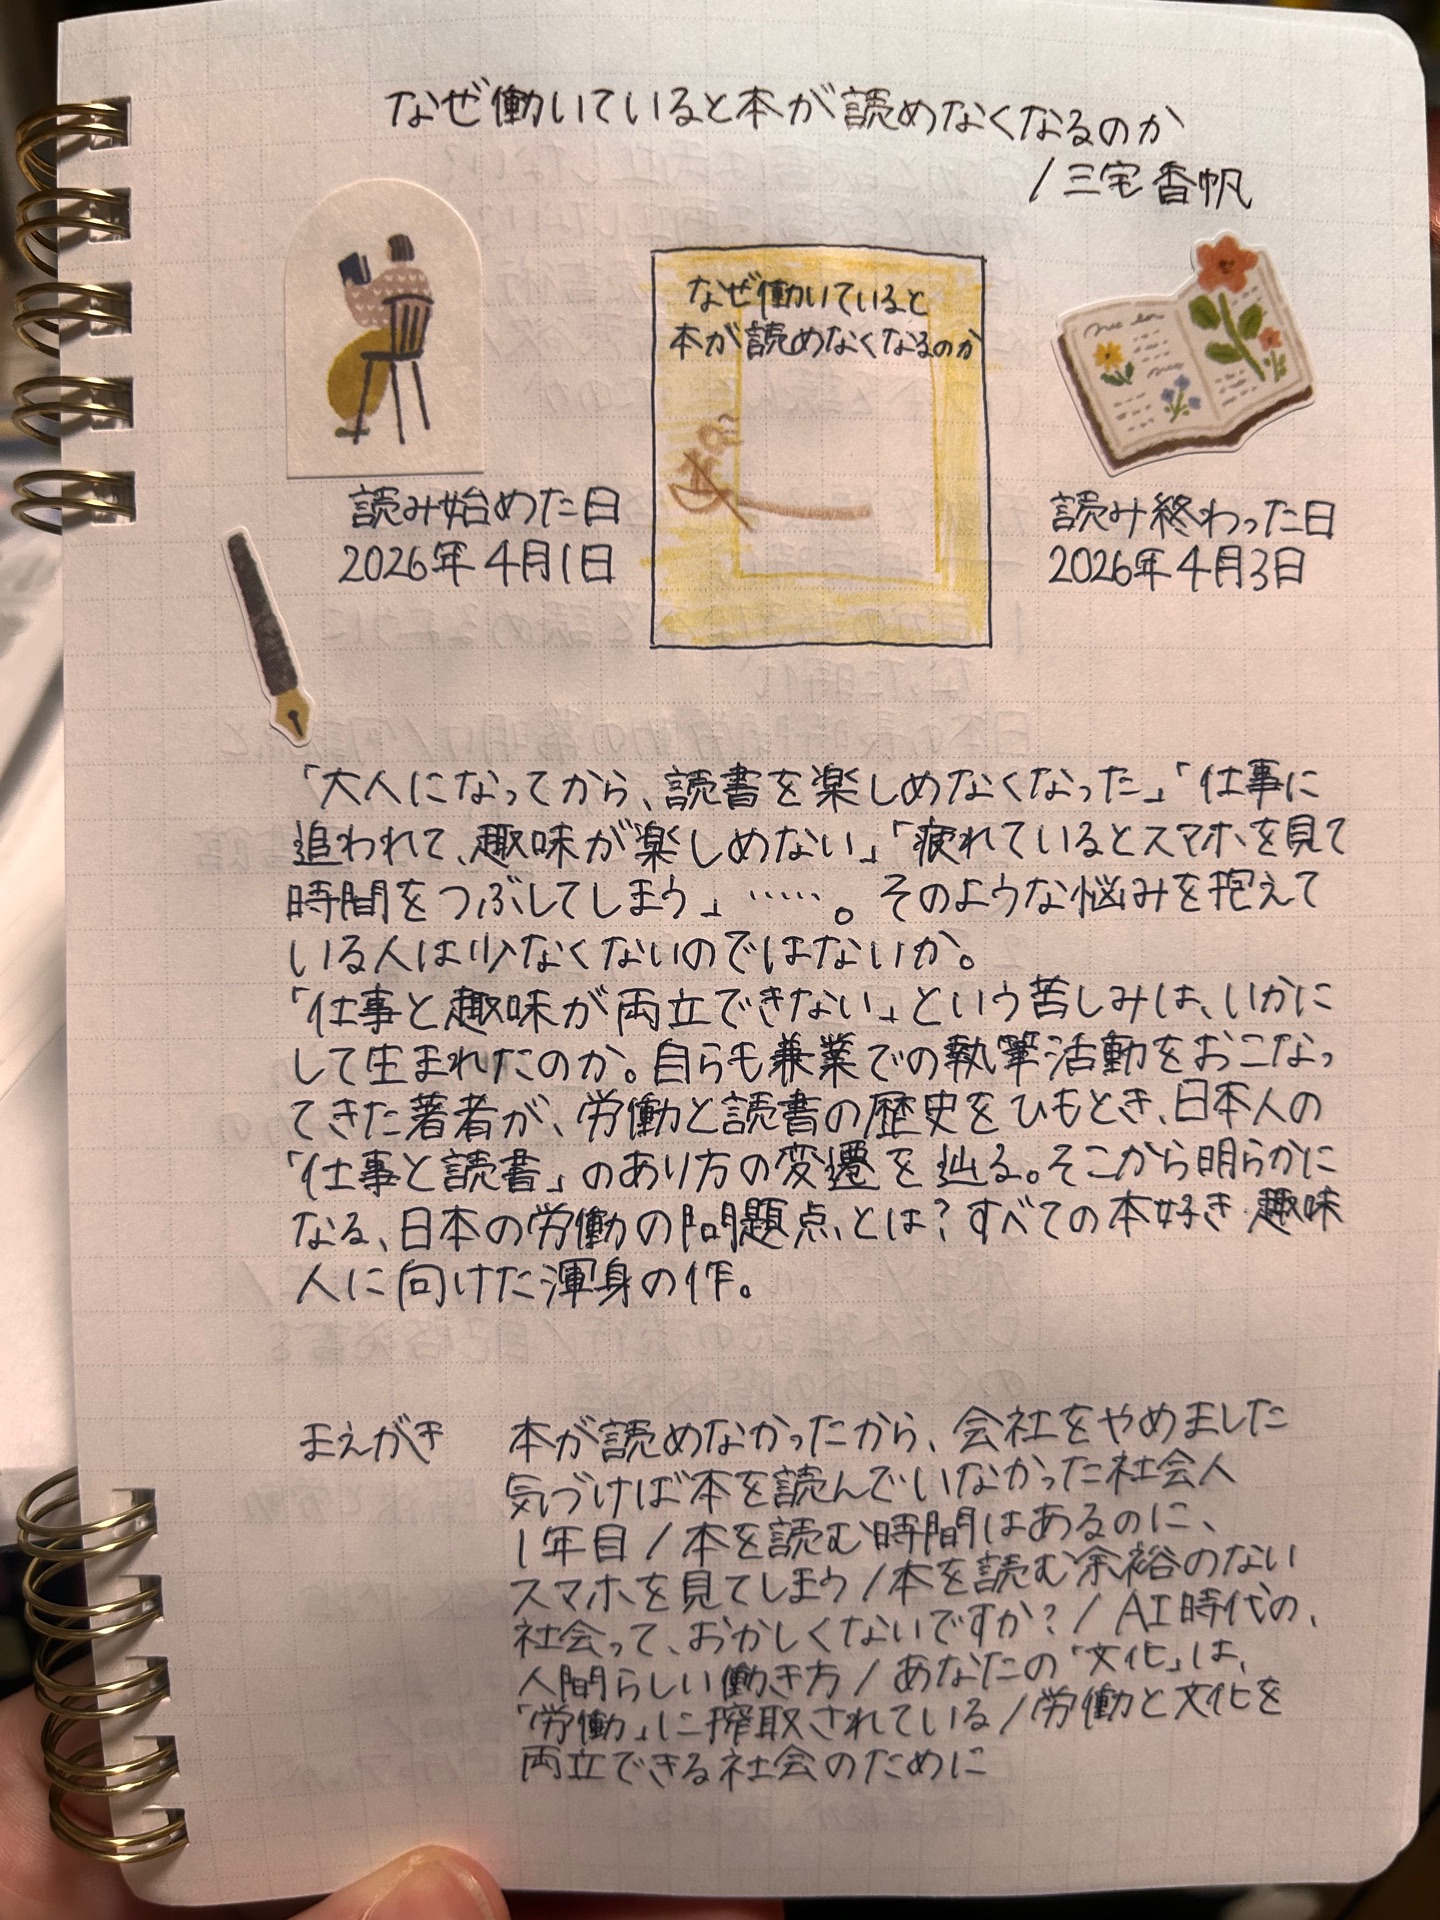 なぜ働いていると本が読めなくなるのか
/三宅香帆
なぜ働いていると
本が読めなくなるのか
読み始めた日
2026年4月1日
読み終わった日
2026年4月3日
「大人になってから、読書を楽しめなくなった」「仕事に
追われて、趣味が楽しめない」「疲れているとスマホを見て
時間をつぶしてしまう」……。そのような悩みを抱えて
いる人は少なくないのではないか。
「仕事と趣味が両立できない」という苦しみは、いかに
して生まれたのか。自らも兼業での執筆活動をおこなっ
てきた著者が、労働と読書の歴史をひもとき、日本人の
「仕事と読書」のあり方の変遷を辿る。そこから明らかに
なる、日本の労働の問題点とは?すべての本好き・趣味
人に向けた渾身の作。
まえがき 本が読めなかったから、会社をやめました
気づけば本を読んでいなかった社会人
1年目/本を読む時間はあるのに、
スマホを見てしまう/本を読む余裕のない
社会って、おかしくないですか?/AI時代の、
人間らしい働き方/あなたの「文化」は、
「労働」に搾取されている/労働と文化を
両立できる社会のために